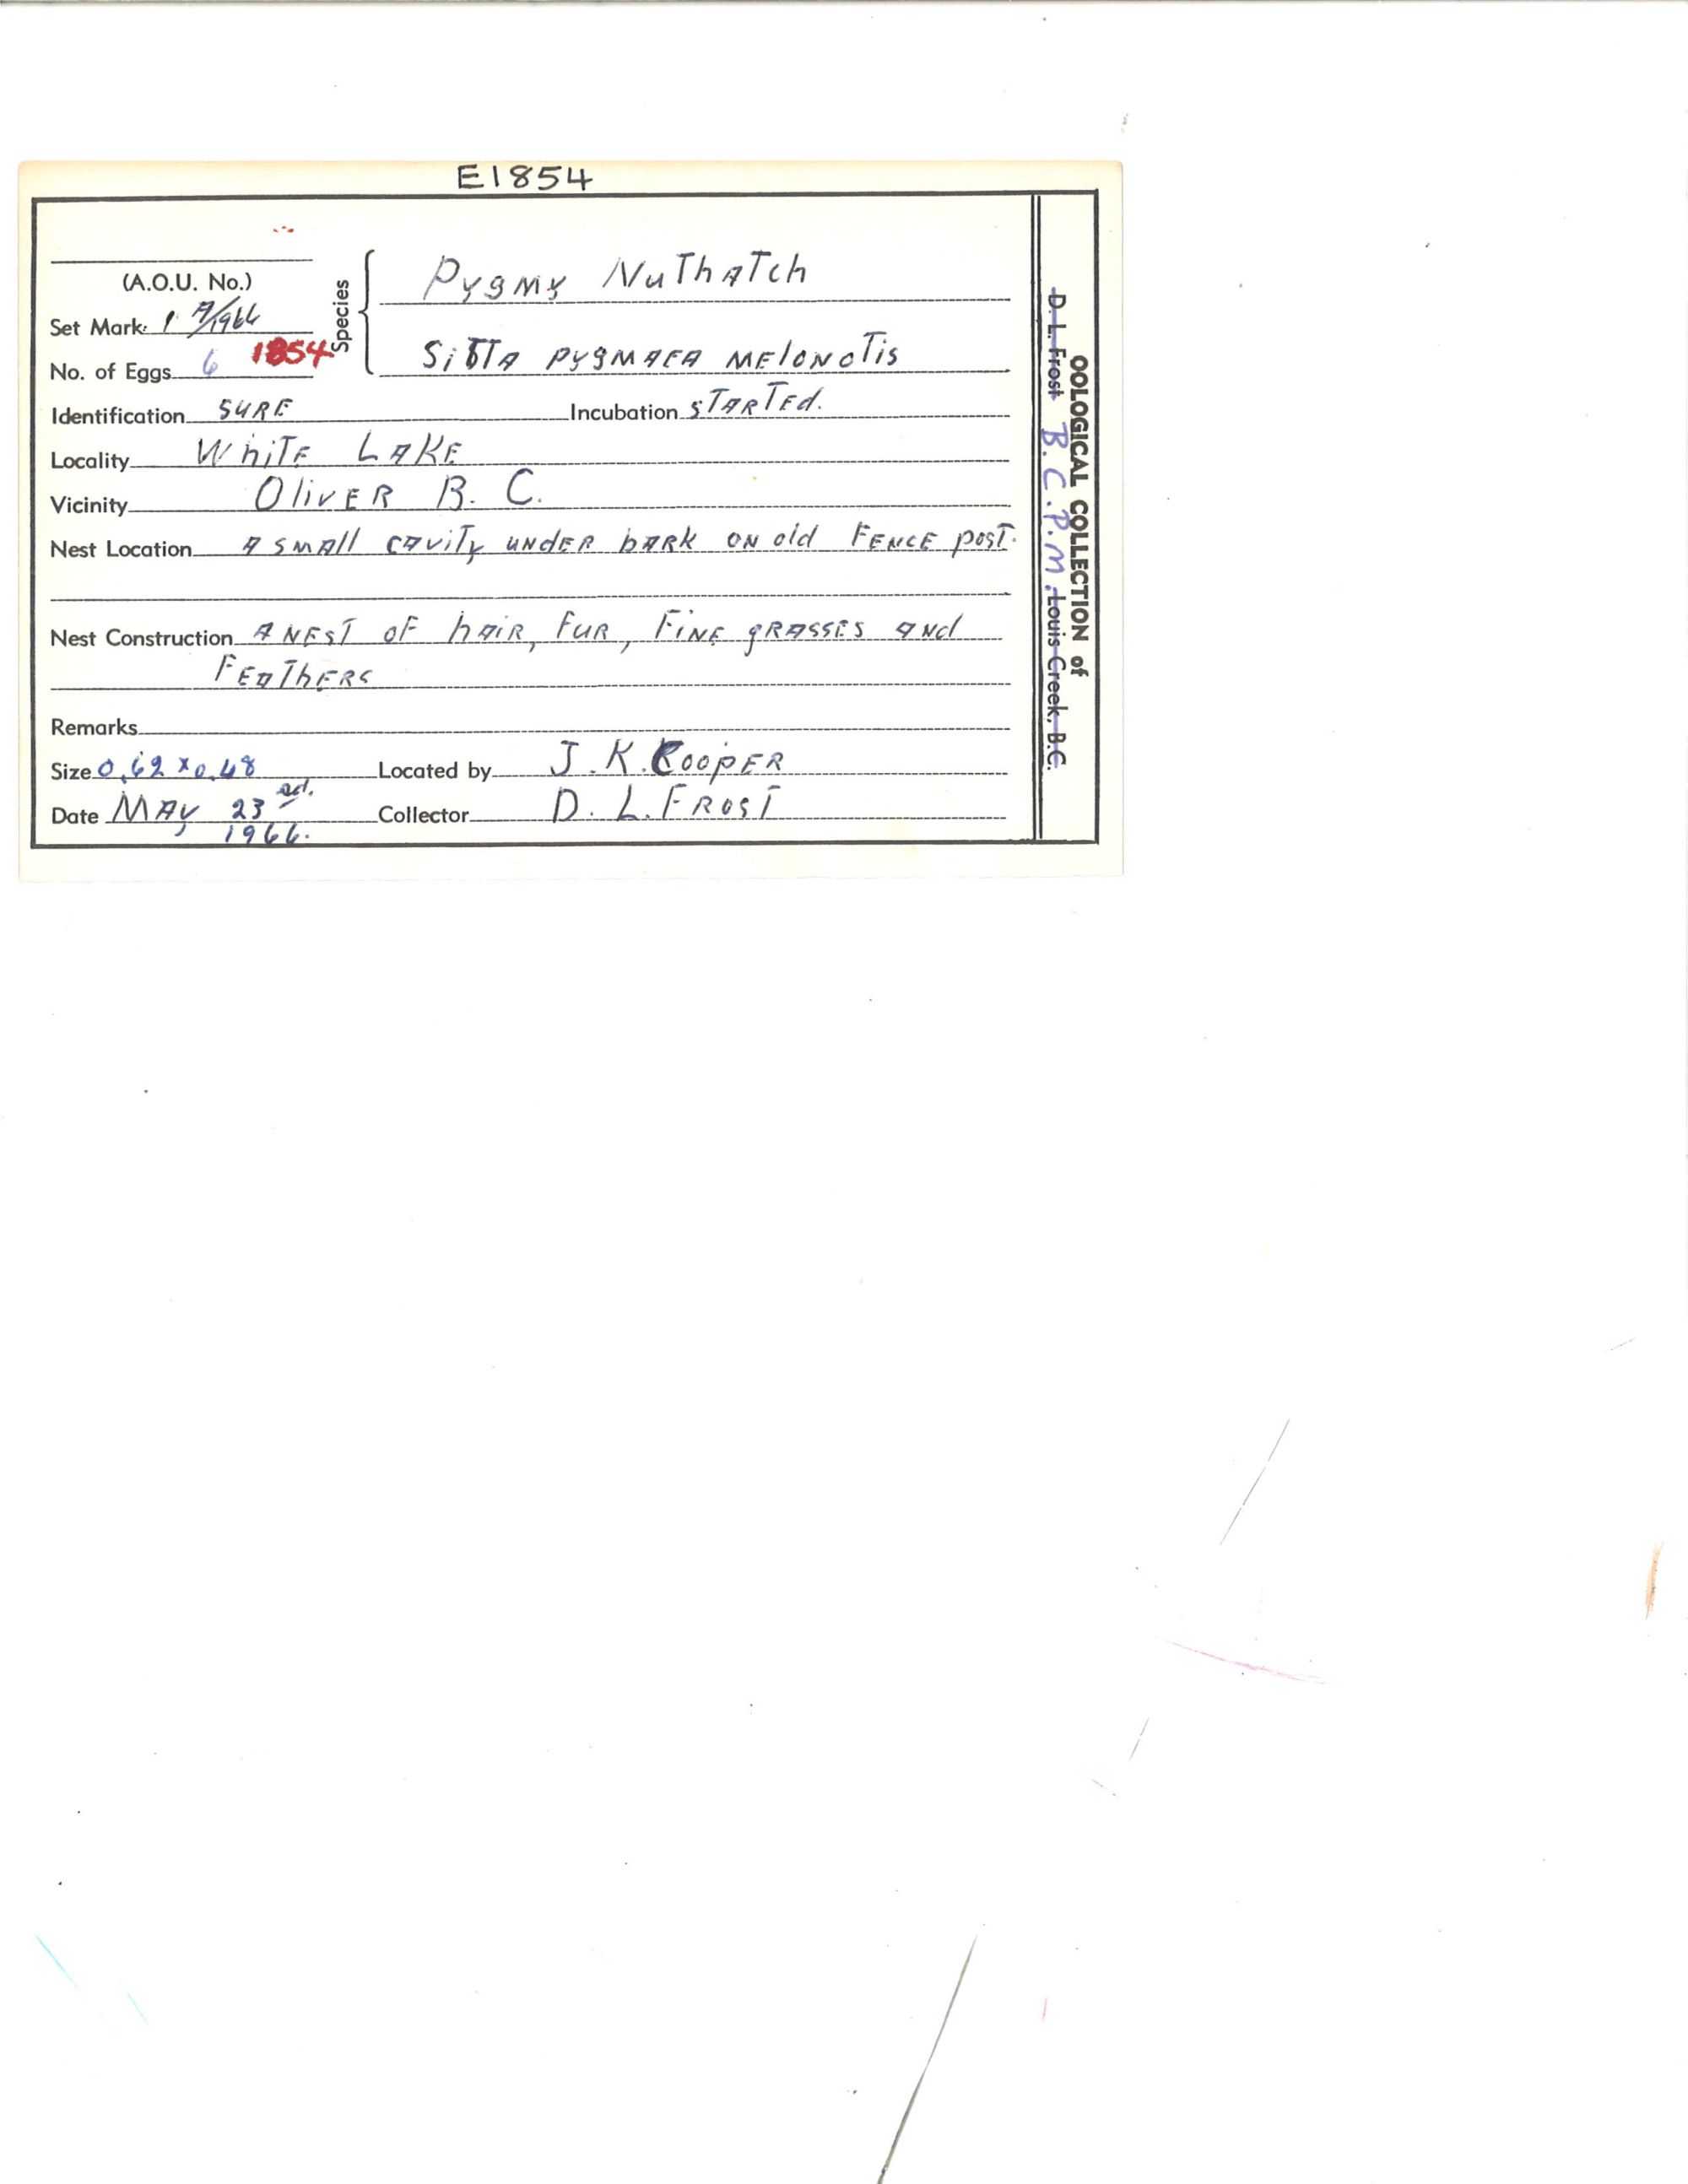 E1854
(A.O.U. No.)
Set Mark 1 A/1966
No. of Eggs 6 1854
Species
Pygmy NuThATch
SiTTA pygMAEA MElONOTis
Identification SURE Incubation STARTEd.
Locality WhiTE LAKE
Vicinity OlivER B. C.
Nest Location A SMAll CAviTy UNDER bARk ON old FENCE posT.
Nest Construction A NEST OF hAiR, FUR, FiNE gRASSES ANd
FEATHERS
Remarks
Size 0.62 x 0.48 Located by J. K. COOpER
Date MAy 23 rd. Collector D. L. FROST
1966.
OOLOGICAL COLLECTION of
D. L. Frost B.C.P.M. Louis Creek, B.C.